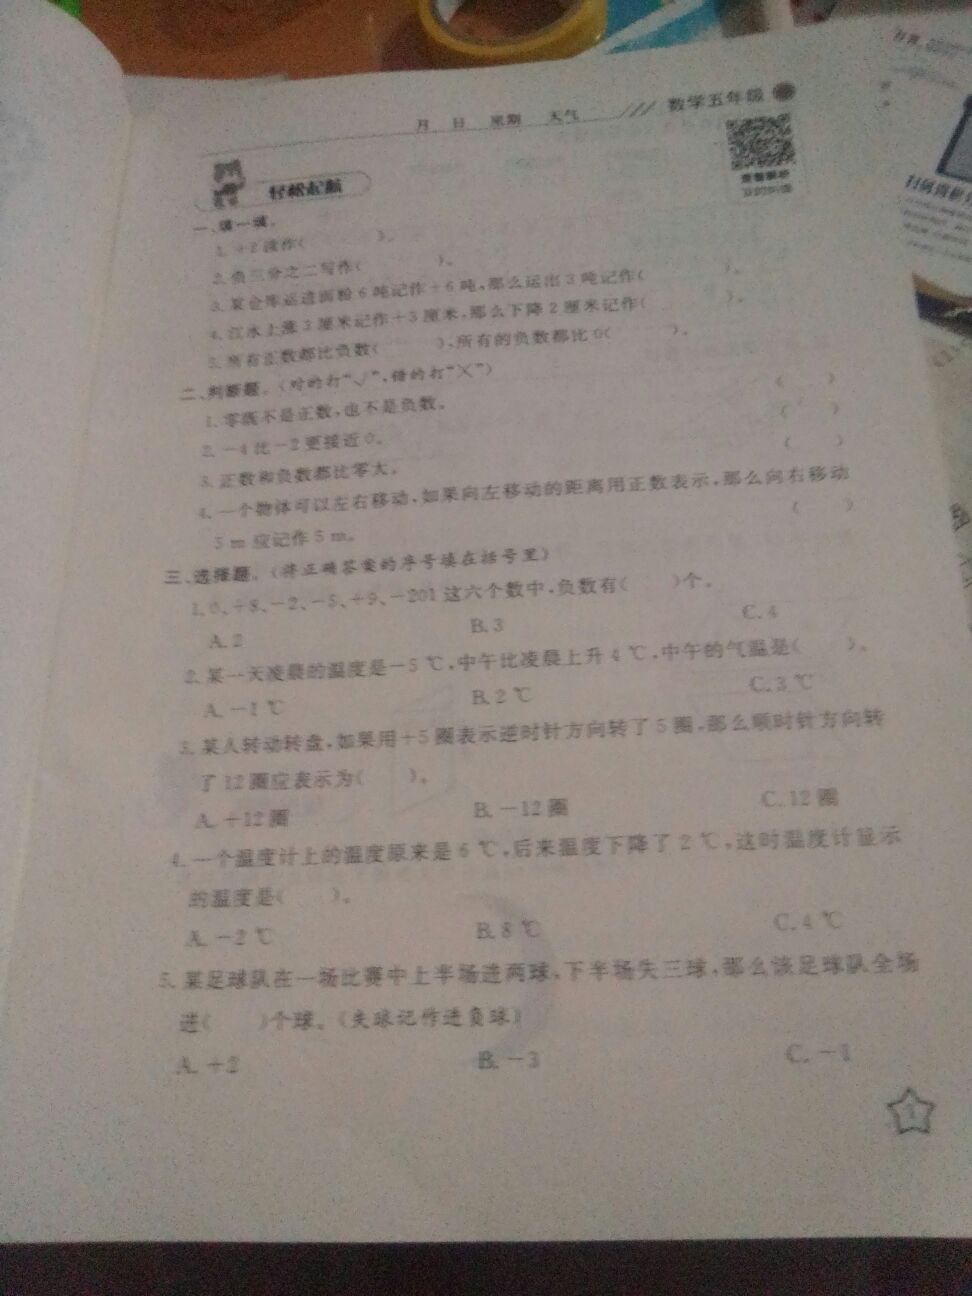 月 日 星期 天气 数学五年级
轻松起航
一、填一填。
1. +2读作( )。
2. 负三分之二写作( )。
3. 某仓库运进面粉6吨记作+6吨,那么运出3吨记作( )。
4. 江水上涨3厘米记作+3厘米,那么下降2厘米记作( )。
5. 所有正数都比负数( ),所有的负数都比0( )。
二、判断题。(对的打“√”,错的打“×”)
1. 零既不是正数,也不是负数。 ( )
2. -4比-2更接近0。 ( )
3. 正数和负数都比零大。 ( )
4. 一个物体可以左右移动,如果向左移动的距离用正数表示,那么向右移动
5 m应记作5 m。 ( )
三、选择题。(将正确答案的序号填在括号里)
1. 0、+8、-2、-5、+9、-201这六个数中,负数有( )个。
A. 2 B. 3 C. 4
2. 某一天凌晨的温度是-5 ℃,中午比凌晨上升4 ℃,中午的气温是( )。
A. -1 ℃ B. 2 ℃ C. 3 ℃
3. 某人转动转盘,如果用+5圈表示逆时针方向转了5圈,那么顺时针方向转
了12圈应表示为( )。
A. +12圈 B. -12圈 C. 12圈
4. 一个温度计上的温度原来是6 ℃,后来温度下降了2 ℃,这时温度计显示
的温度是( )。
A. -2 ℃ B. 8 ℃ C. 4 ℃
5. 某足球队在一场比赛中上半场进两球,下半场失三球,那么该足球队全场
进( )个球。(失球记作进负球)
A. +2 B. -3 C. -1
1